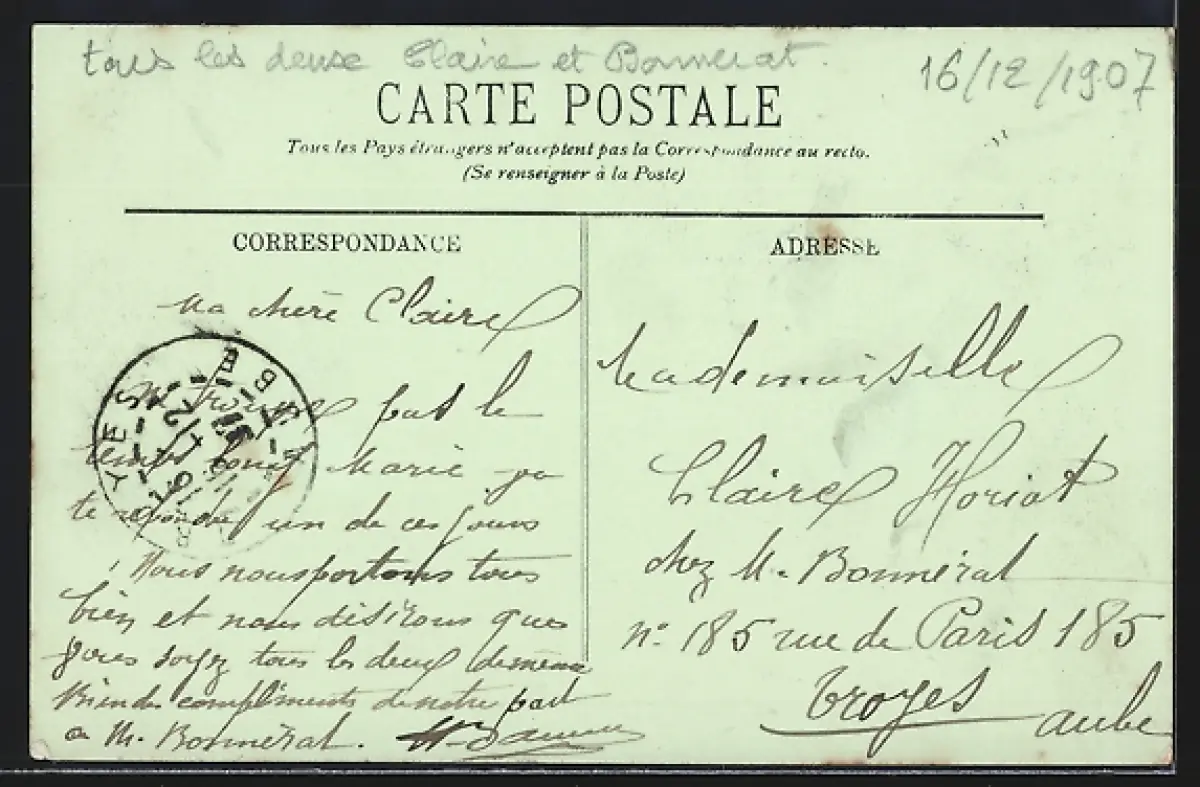 tous les deuse Claire et Bonnerat.
16/12/1907
CARTE POSTALE
Tous les Pays étrangers n'acceptent pas la Correspondance au recto.
(Se renseigner à la Poste)
CORRESPONDANCE
Ma chère Claire
pas le
temps Marie va
te répondre un de ces jours
Nous nous portons tous
bien et nous désirons que
vous soyez tous les deux de même
Bien des compliments de notre part
a M. Bonnerat.
ADRESSE
Mademoiselle
Claire Horiot
chez M. Bonnerat
n° 185 rue de Paris 185
Troyes
aube